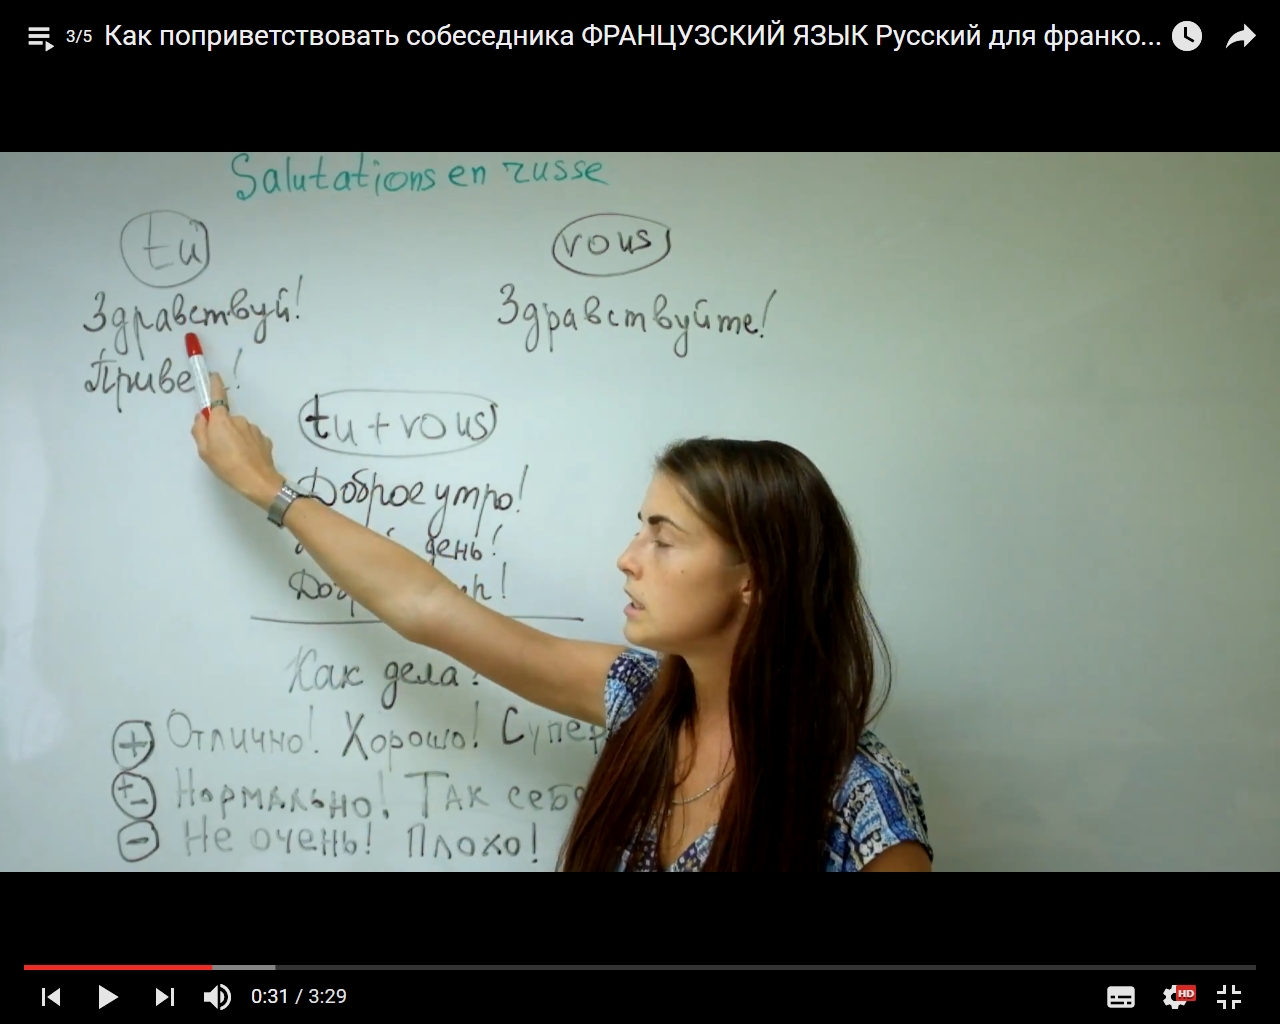 3/5 Как поприветствовать собеседника ФРАНЦУЗСКИЙ ЯЗЫК Русский для франко...
Salutations en russe
tu
vous
Здравствуй!
Здравствуйте!
!
tu + vous
Доброе утро!
день!
!
Как дела?
+ Отлично! Хорошо!
+- Нормально! Так
- Не очень! Плохо!
0:31 / 3:29
HD